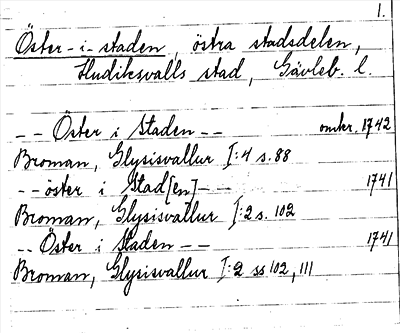 1.
Öster-i-staden, östra stadsdelen,
Hudiksvalls stad, Gävleb. l.
-- Öster i Staden -- omkr. 1742
Broman, Glysisvallur I:4 s. 88
-- öster i Stad[en] -- 1741
Broman, Glysisvallur I:2 s. 102
-- Öster i Staden -- 1741
Broman, Glysisvallur I:2 ss 102, 111